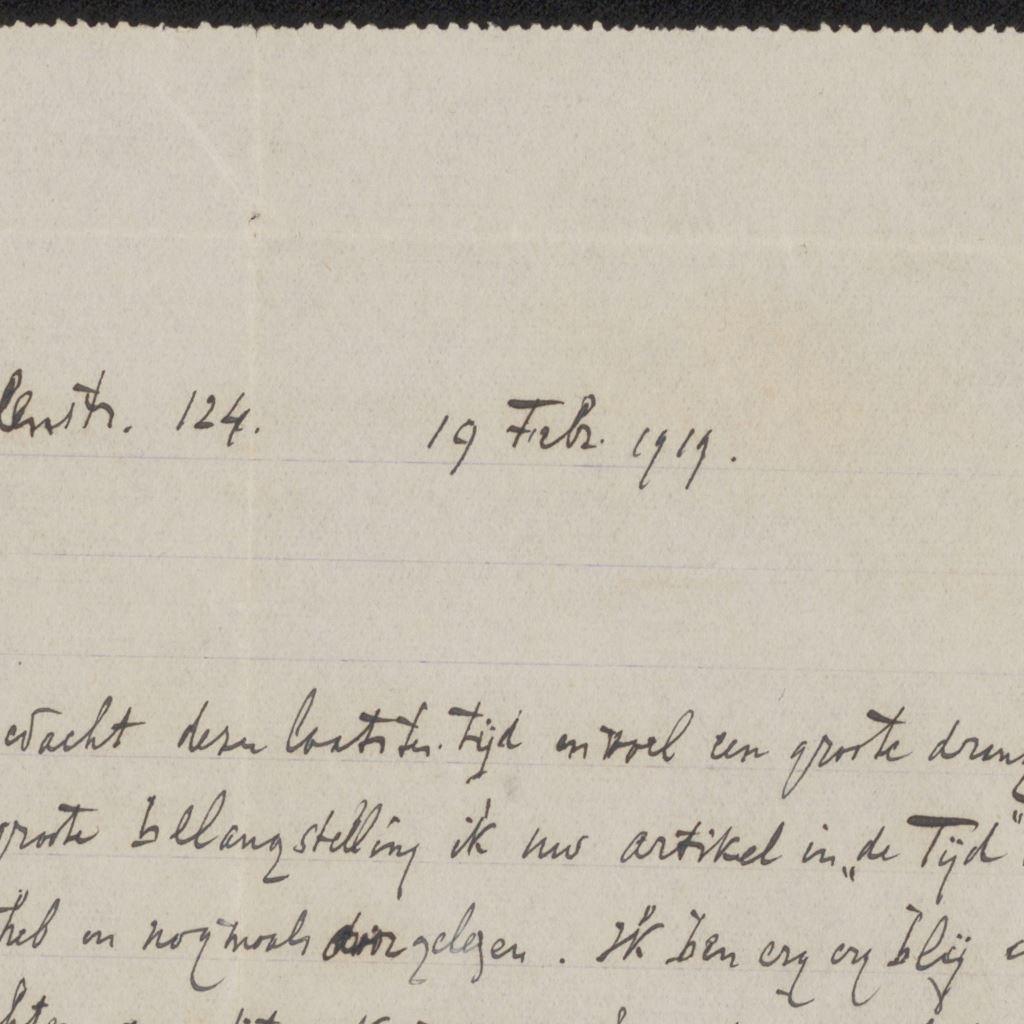 lenstr. 124. 19 Febr. 1919.
edacht dezen laatsten tijd en voel een groote drang
groote belangstelling ik uw artikel in „de Tijd"
heb en nogmaals doorgelezen. Ik ben erg erg blij